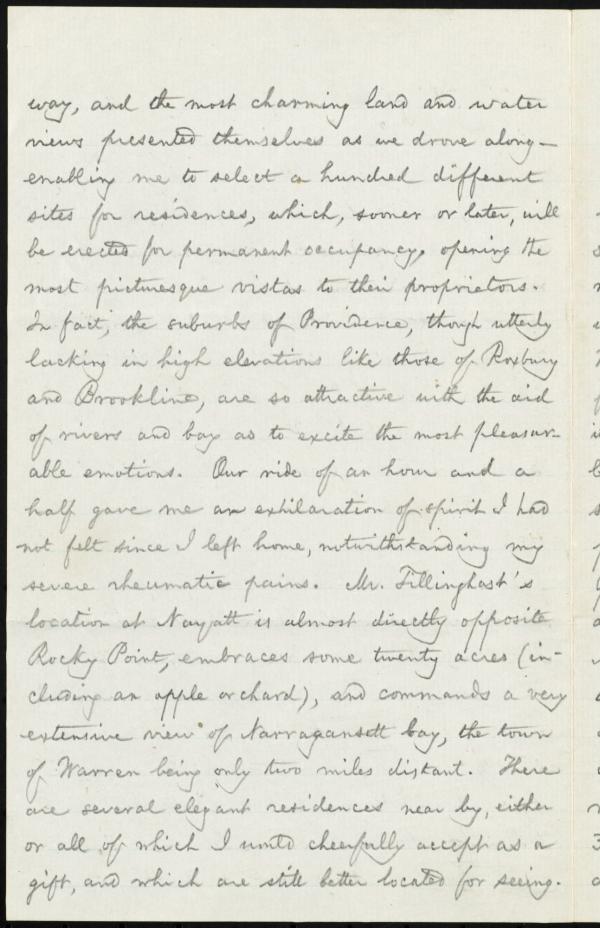 way, and the most charming land and water
views presented themselves as we drove along—
enabling me to select a hundred different
sites for residences, which, sooner or later, will
be erected for permanent occupancy, opening the
most picturesque vistas to their proprietors.
In fact, the suburbs of Providence, though utterly
lacking in high elevations like those of Roxbury
and Brookline, are so attractive with the aid
of rivers and bay as to excite the most pleasur-
able emotions. Our ride of an hour and a
half gave me an exhilaration of spirit I had
not felt since I left home, notwithstanding my
severe rheumatic pains. Mr. Tillinghast's
location at Nayatt is almost directly opposite
Rocky Point, embraces some twenty acres (in-
cluding an apple orchard), and commands a very
extensive view of Narragansett bay, the town
of Warren being only two miles distant. There
are several elegant residences near by, either
or all of which I would cheerfully accept as a
gift, and which are still better located for seeing.